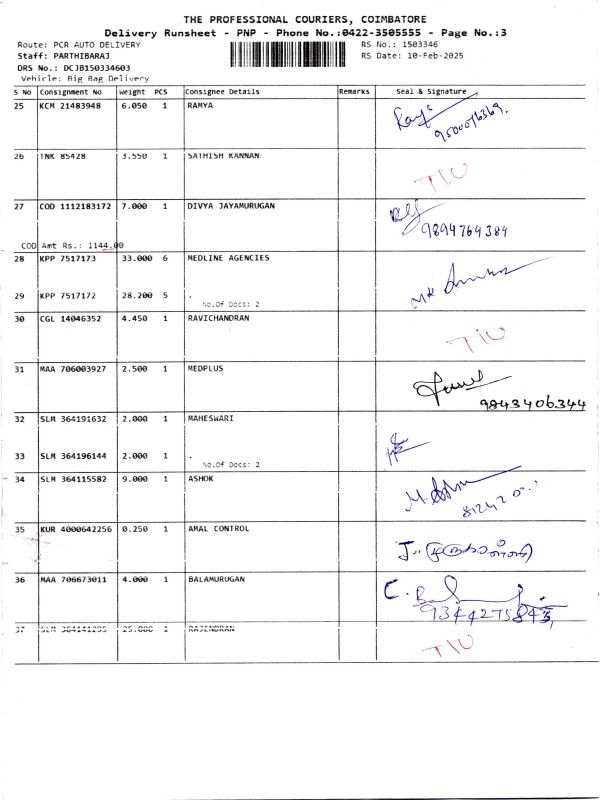 THE PROFESSIONAL COURIERS, COIMBATORE
Delivery Runsheet - PNP - Phone No.:0422-3505555 - Page No.:3
Route: PCR AUTO DELIVERY RS No.: 1503346
Staff: PARTHIBARAJ RS Date: 10-Feb-2025
DRS No.: DCJB150334603
Vehicle: Big Bag Delivery
S No Consignment No Weight PCS Consignee Details Remarks Seal & Signature
25 KCM 21483948 6.050 1 RAMYA
26 TNK 85428 3.550 1 SATHISH KANNAN
TIU
27 COD 1112183172 7.000 1 DIVYA JAYAMURUGAN
9894769389
COD Amt Rs.: 1144.00
28 KPP 7517173 33.000 6 MEDLINE AGENCIES
29 KPP 7517172 28.200 5 .
No.Of Docs: 2
30 CGL 14046352 4.450 1 RAVICHANDRAN
TIU
31 MAA 706003927 2.500 1 MEDPLUS
9843406344
32 SLM 364191632 2.000 1 MAHESWARI
33 SLM 364196144 2.000 1 .
No.Of Docs: 2
34 SLM 364115582 9.000 1 ASHOK
35 KUR 4000642256 0.250 1 AMAL CONTROL
36 MAA 706673011 4.000 1 BALAMURUGAN
9344275843
37 SLM 364141295 25.000 1 RAJENDRAN
TIU